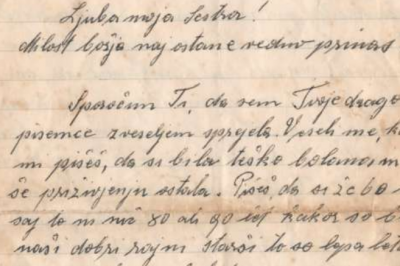 Ljuba moja Sestra!
Milost božja naj ostane vedno prinas
Sporočim Ti, da sem Tvoje drago
pisemce z veseljem sprejela. Vseli me, k
mi pišeš, da si bila teško bolana, in
še pri življenju ostala. Pišeš, da si že bo
saj to ni nič 80 ali 90 let kakor so b
naši dobri starši to so lepa leta